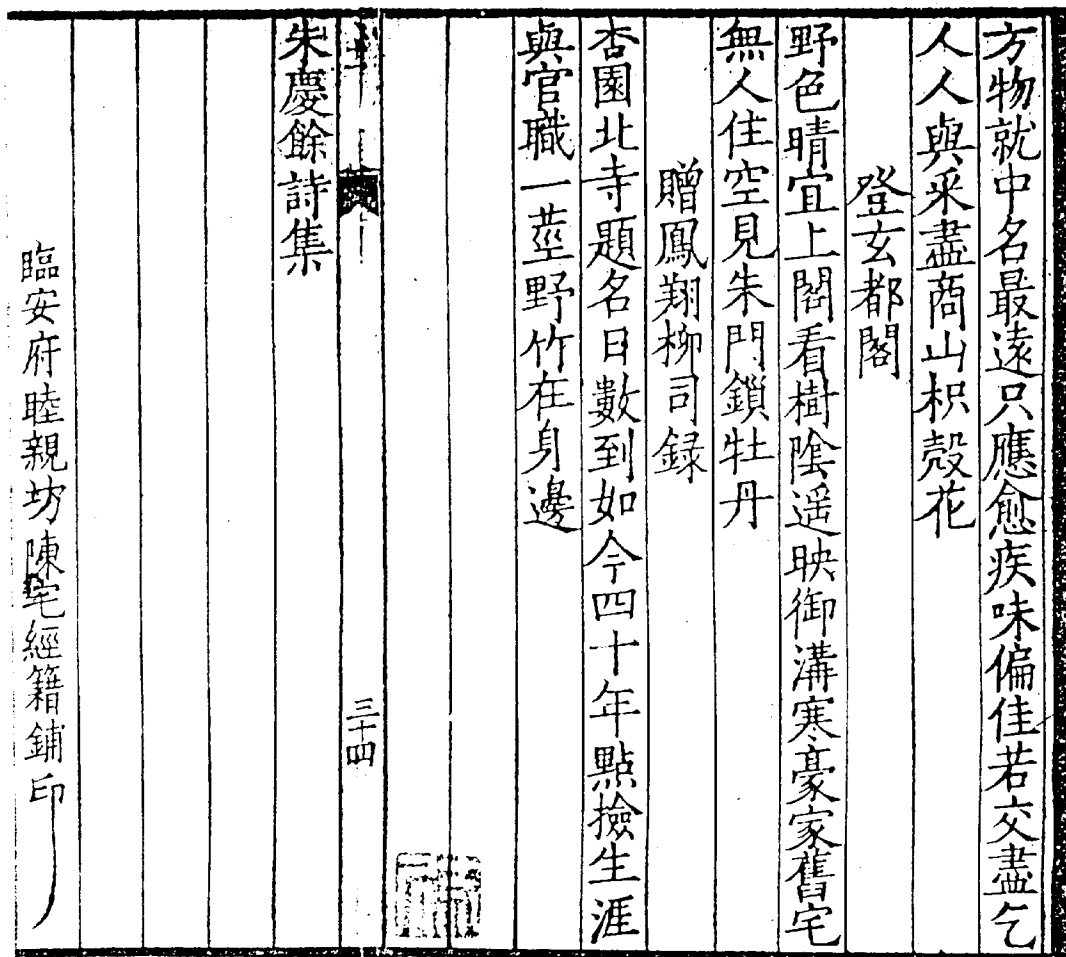 方物就中名最遠只應愈疾味偏佳若交盡乞
人人與采盡商山枳殼花
登玄都閣
野色晴宜上閣看樹陰遥映御溝寒豪家舊宅
無人住空見朱門鎖牡丹
贈鳳翔柳司録
杏園北寺題名日數到如今四十年點撿生涯
與官職一莖野竹在身邊
三十四
朱慶餘詩集
臨安府睦親坊陳宅經籍鋪印